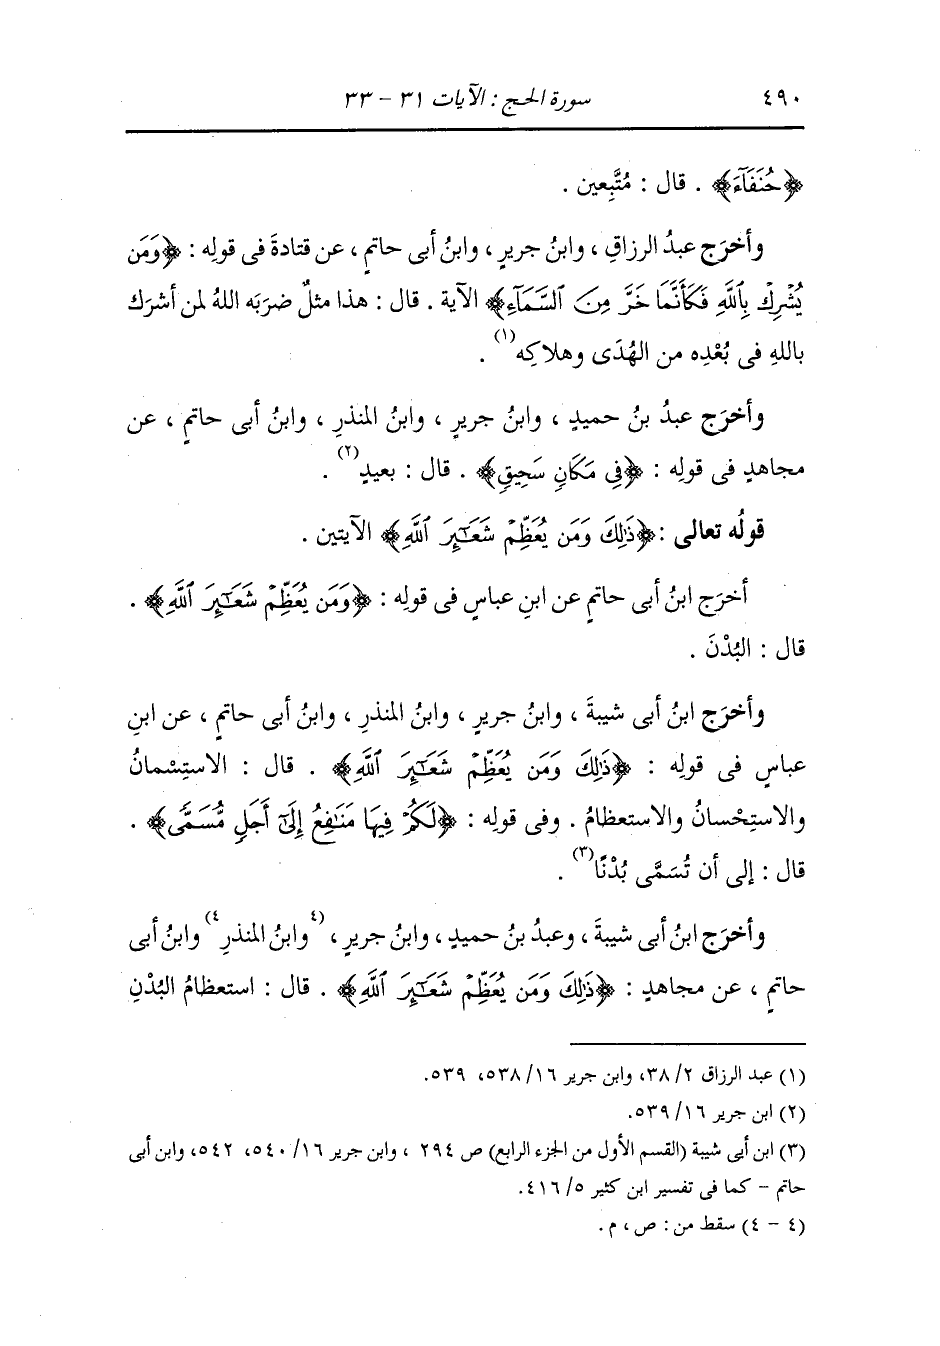 ٤٩٠ سورة الحج : الآيات ٣١ - ٣٣
﴿حُنَفَآءَ﴾ . قال : مُتَّبِعين .
وأخرَج عبدُ الرزاقِ ، وابنُ جريرٍ ، وابنُ أبى حاتمٍ ، عن قتادةَ فى قولِه : ﴿وَمَن
يُشْرِكْ بِٱللَّهِ فَكَأَنَّمَا خَرَّ مِنَ ٱلسَّمَآءِ﴾ الآية . قال : هذا مثلٌ ضرَبَه اللهُ لمن أشرَك
باللهِ فى بُعْدِه من الهُدَى وهلاكِه(١) .
وأخرَج عبدُ بنُ حميدٍ ، وابنُ جريرٍ ، وابنُ المنذرِ ، وابنُ أبى حاتمٍ ، عن
مجاهدٍ فى قولِه : ﴿فِى مَكَانٍ سَحِيقٍ﴾ . قال : بعيدٍ(٢) .
قولُه تعالى : ﴿ذَٰلِكَ وَمَن يُعَظِّمْ شَعَٰٓئِرَ ٱللَّهِ﴾ الآيتين .
أخرَج ابنُ أبى حاتمٍ عن ابنِ عباسٍ فى قولِه : ﴿وَمَن يُعَظِّمْ شَعَٰٓئِرَ ٱللَّهِ﴾ .
قال : البُدْنَ .
وأخرَج ابنُ أبى شيبةَ ، وابنُ جريرٍ ، وابنُ المنذرِ ، وابنُ أبى حاتمٍ ، عن ابنِ
عباسٍ فى قولِه : ﴿ذَٰلِكَ وَمَن يُعَظِّمْ شَعَٰٓئِرَ ٱللَّهِ﴾ . قال : الاستِسْمانُ
والاستِحْسانُ والاستعظامُ . وفى قولِه : ﴿لَكُمْ فِيهَا مَنَٰفِعُ إِلَىٰٓ أَجَلٍ مُّسَمًّى﴾ .
قال : إلى أن تُسَمَّى بُدْنًا(٣) .
وأخرَج ابنُ أبى شيبةَ ، وعبدُ بنُ حميدٍ ، وابنُ جريرٍ ، (٤وابنُ المنذرِ٤) وابنُ أبى
حاتمٍ ، عن مجاهدٍ : ﴿ذَٰلِكَ وَمَن يُعَظِّمْ شَعَٰٓئِرَ ٱللَّهِ﴾ . قال : استعظامُ البُدْنِ
(١) عبد الرزاق ٢/ ٣٨، وابن جرير ١٦/ ٥٣٨، ٥٣٩.
(٢) ابن جرير ١٦/ ٥٣٩.
(٣) ابن أبى شيبة (القسم الأول من الجزء الرابع) ص ٢٩٤ ، وابن جرير ١٦/ ٥٤٠، ٥٤٢، وابن أبى
حاتم - كما فى تفسير ابن كثير ٥/ ٤١٦.
(٤ - ٤) سقط من : ص ، م .